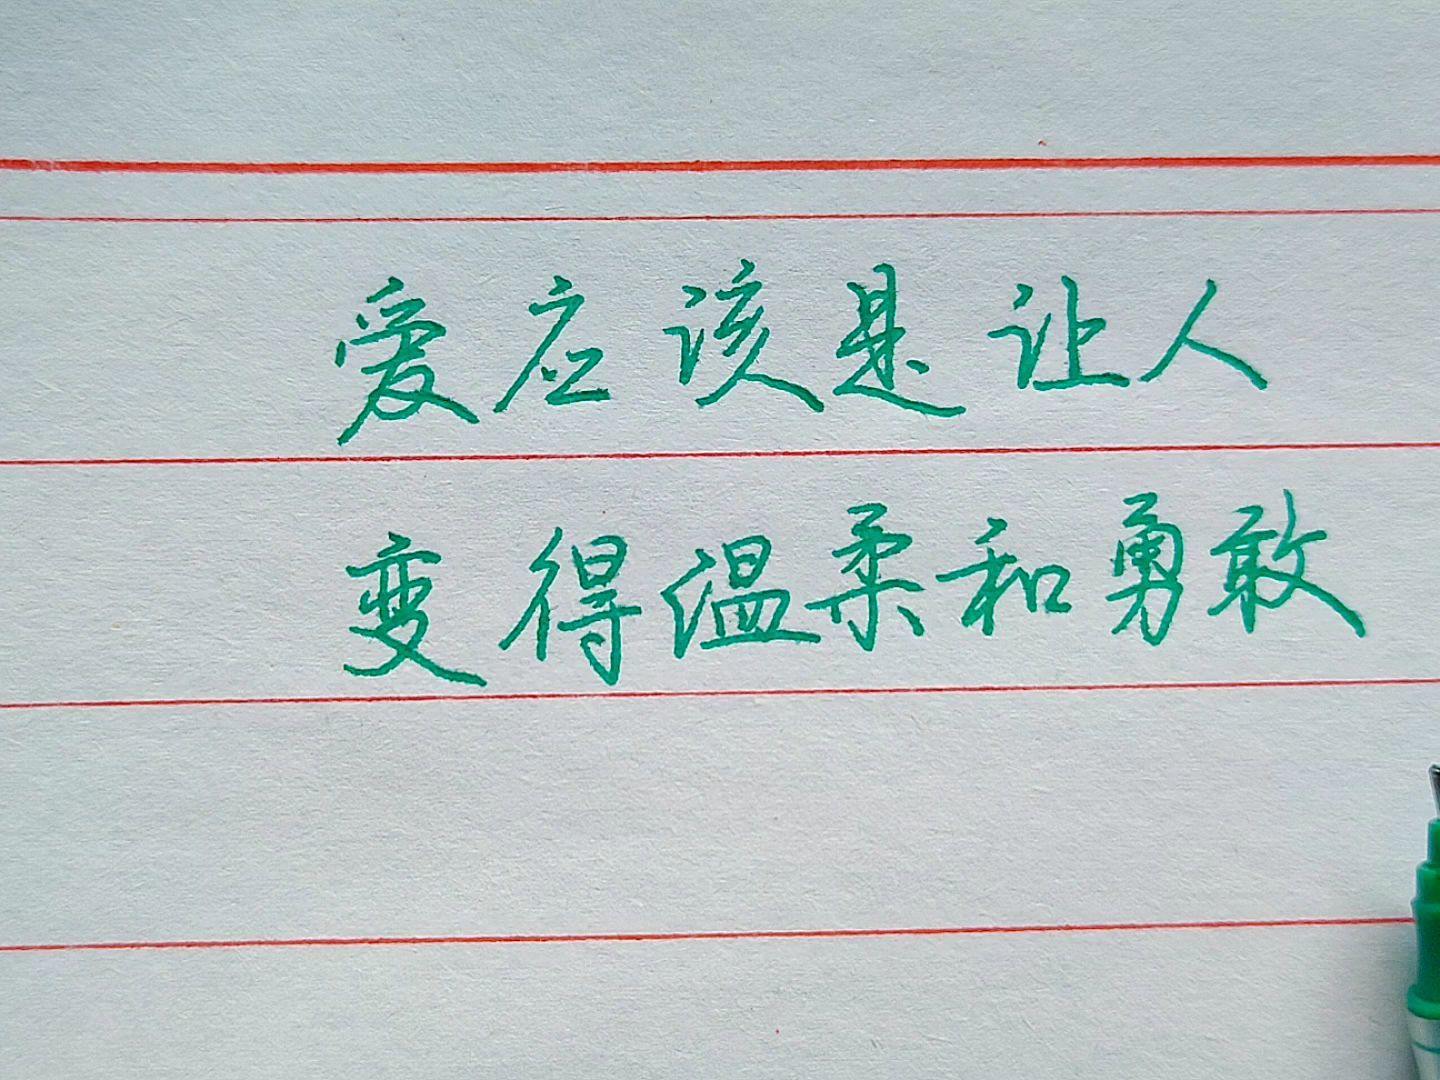 爱应该是让人
变得温柔和勇敢